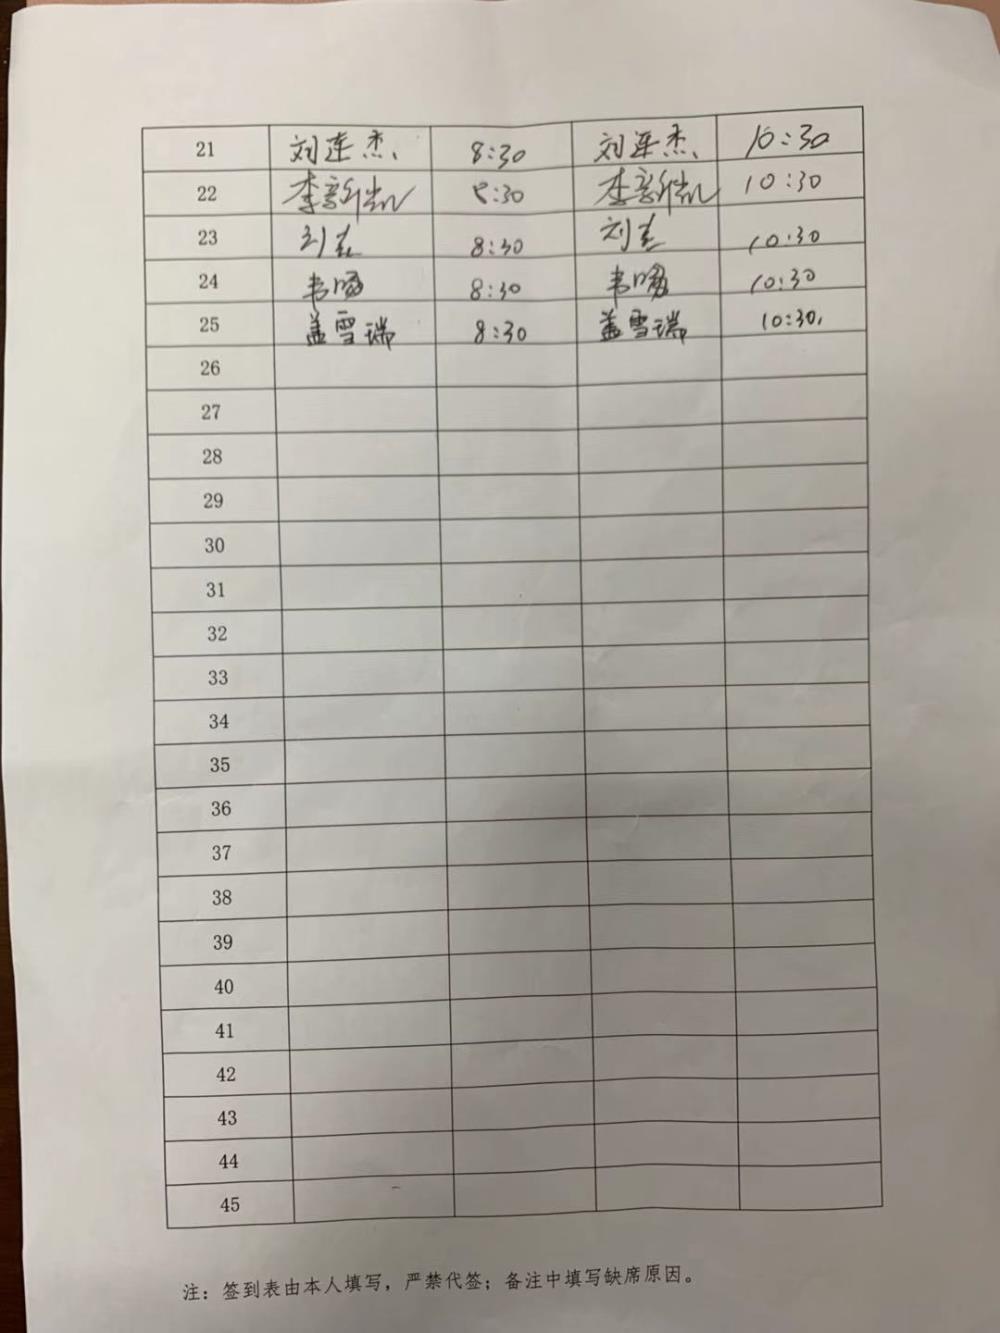 21 刘连杰 8:30 刘连杰 10:30
22 李新凯 8:30 李新凯 10:30
23 刘 8:30 刘 10:30
24 韦 8:30 韦 10:30
25 盖雪瑞 8:30 盖雪瑞 10:30
26
27
28
29
30
31
32
33
34
35
36
37
38
39
40
41
42
43
44
45
注：签到表由本人填写，严禁代签；备注中填写缺席原因。